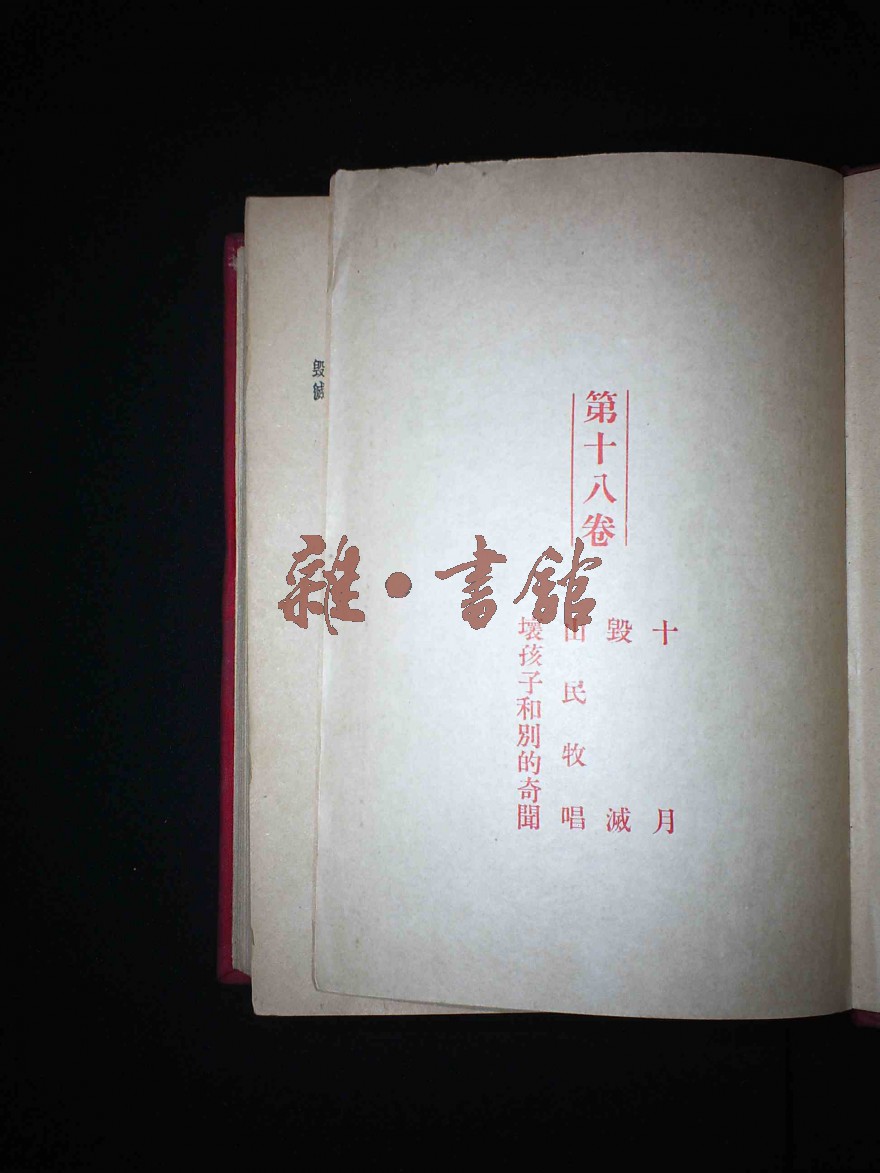 第十八卷
十月
毀滅
山民牧唱
壞孩子和別的奇聞
毀滅
雜·書館